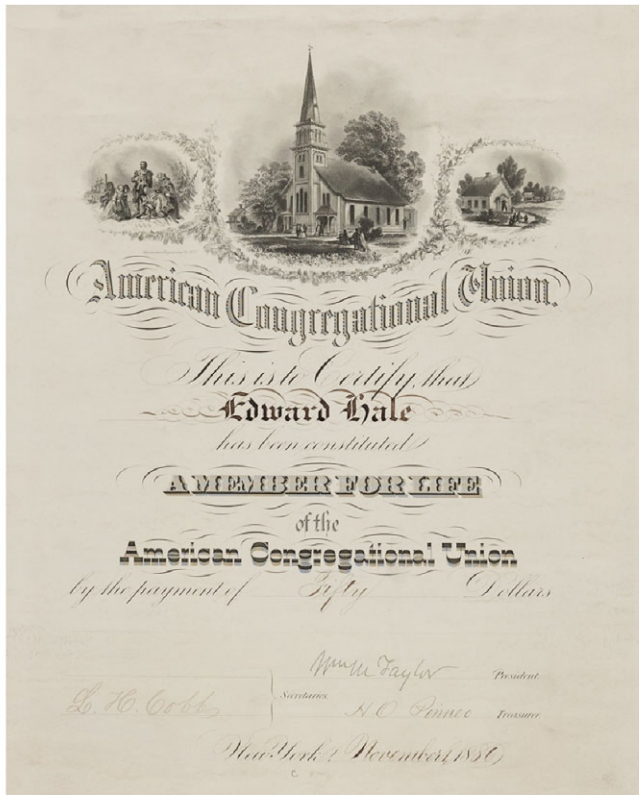 American Congregational Union.
This is to Certify that
Edward Hale
has been constituted
A MEMBER FOR LIFE
of the
American Congregational Union
by the payment of Fifty Dollars
Wm M Taylor President
L. H. Cobb Secretaries
H O Treasurer
New York November